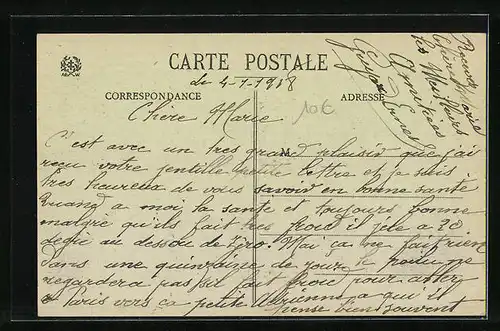 CARTE POSTALE
du 4-1-1918
CORRESPONDANCE
ADRESSE
10€
Chère Marie
M
C'est avec un tres grand plaisir que j'ai
reçu votre jentille petite lettre et je suis
tres heureux de vous savoir en bonne santé
Quand a moi la sante et toujours bonne
malgré qu'ils fait tres froid il jele a 20
degré au dessou de zero. Mai ça ne fait rien
dans une quinzaine de jours le poilu ne
regardera pas sil fait froid pour aller
a Paris vers ca petite a qui il
pense bien souvent
Recevez
chère Marie
Meilleurs
Amitiées
A.B.&W.